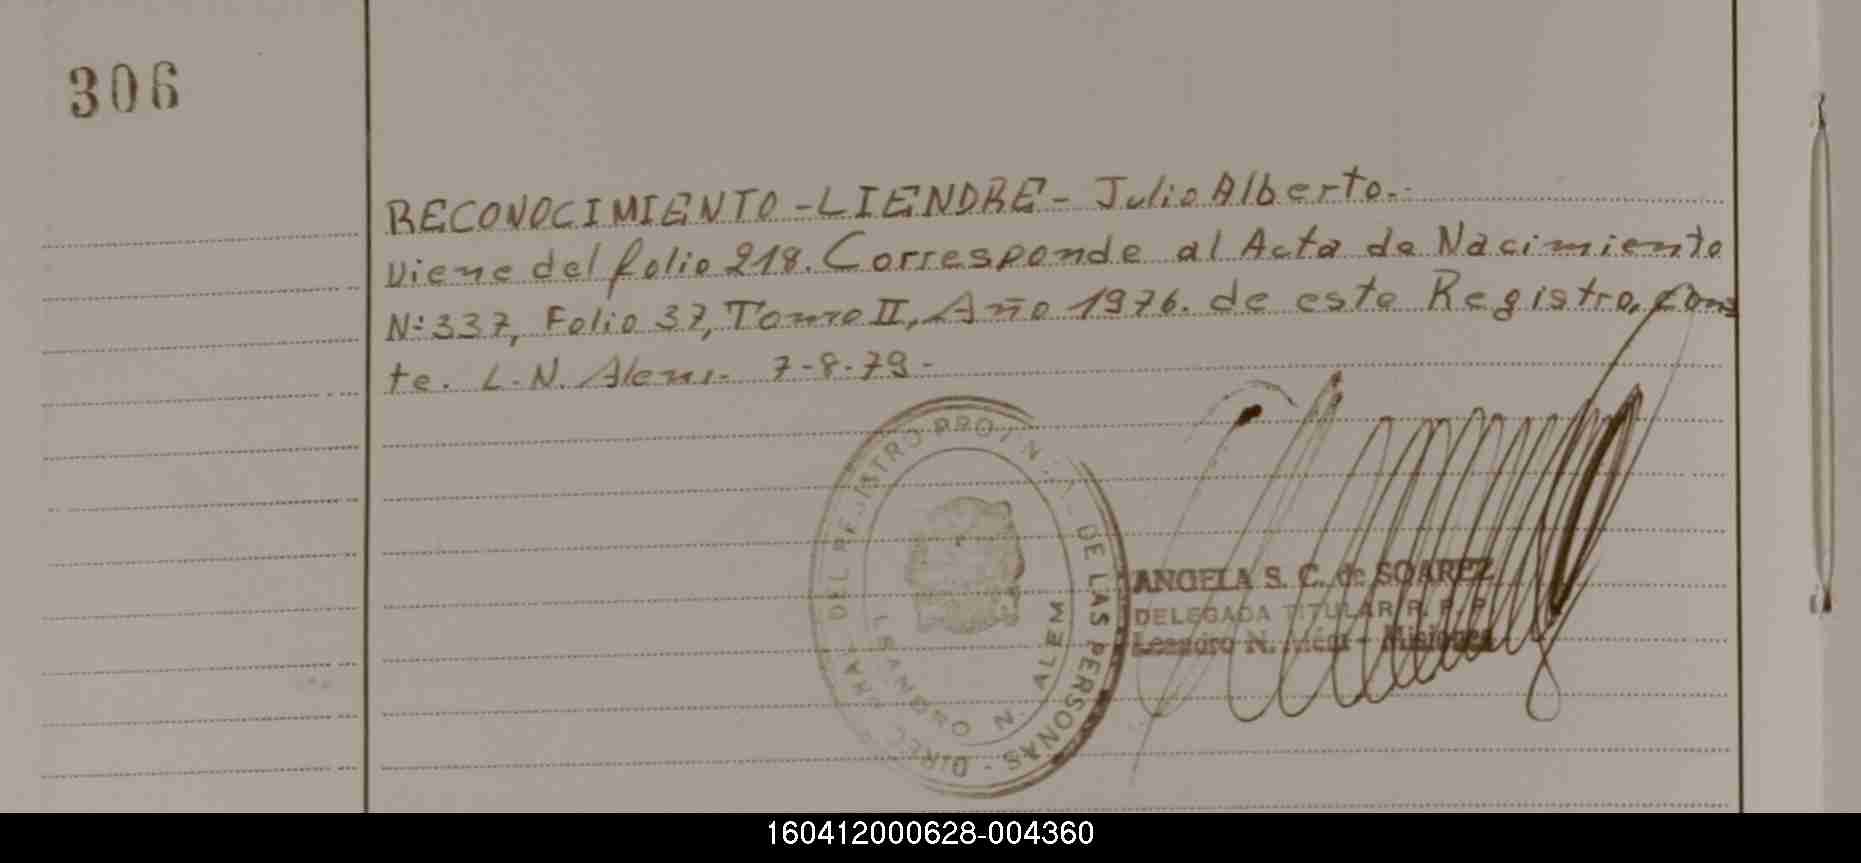 306
RECONOCIMIENTO - LIENDRE - Julio Alberto.-
Viene del folio 218. Corresponde al Acta de Nacimiento
Nº 337, Folio 37, Tomo II, Año 1976. de este Registro, Cons
te. L. N. Alem. 7-8-79-
DIREC. GRAL. DEL REGISTRO PROVIN. DE LAS PERSONAS -
LEANDRO N. ALEM
ANGELA S. C. de SOAREZ
DELEGADA TITULAR R. P. P.
Leandro N. Alem - Misiones
160412000628-004360